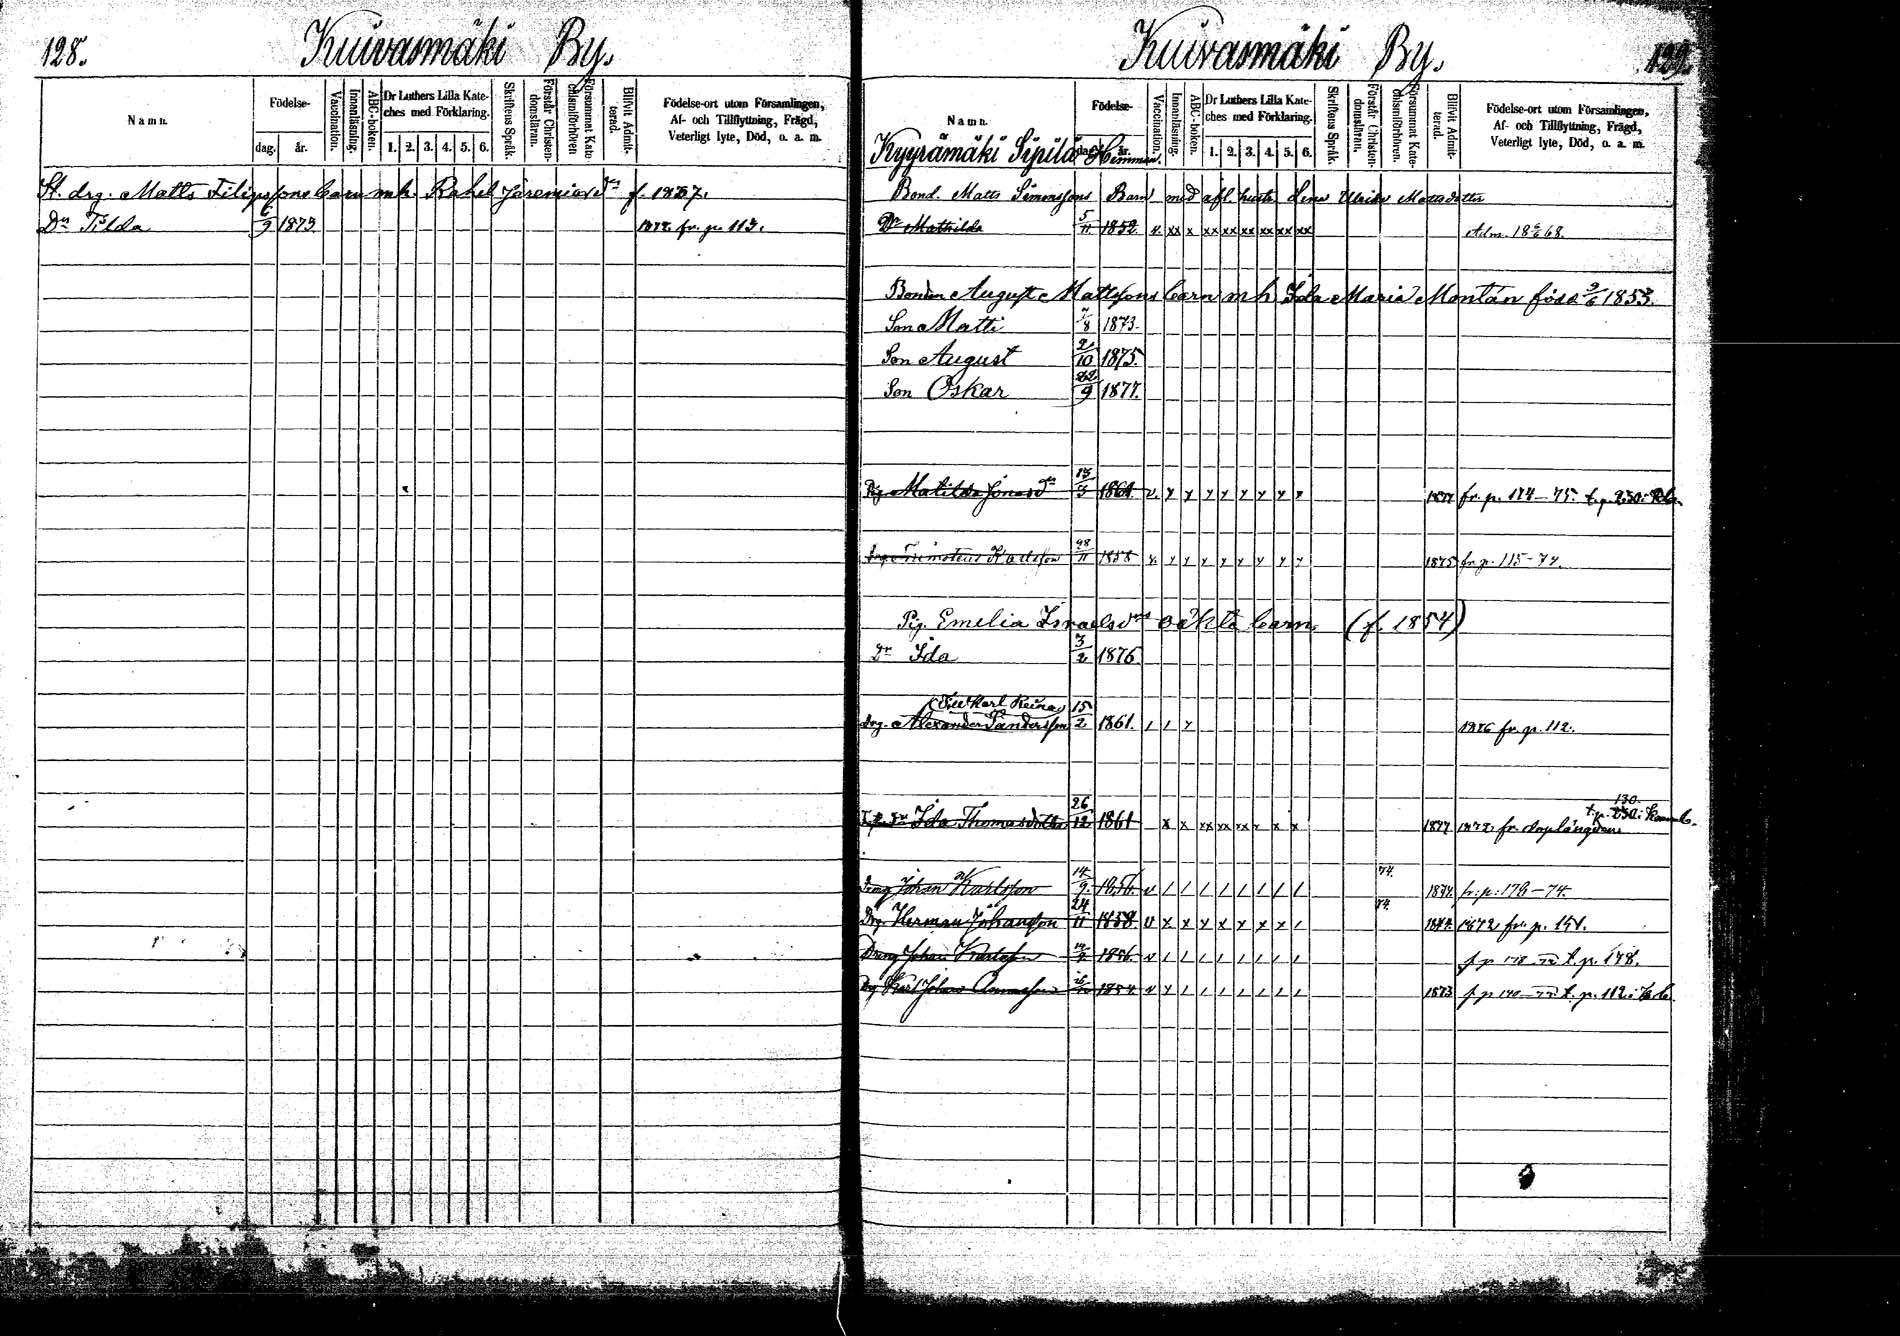 128.
Kuivasmäki By.
Namn.
Födelse-
dag. år.
Vaccination.
Innanläsning.
ABC-boken.
Dr Luthers Lilla Kate-
ches med Förklaring.
1. 2. 3. 4. 5. 6.
Skriftens Språk.
Förstår Christen-
domsläran.
Försummat Kate-
chismiförhören
Blifvit Admit-
terad.
Födelse-ort utom Församlingen,
Af- och Tillflyttning, Frägd,
Veterligt lyte, Död, o. a. m.
St. drg. Matts Filipssons barn m h. Rahel Jeremiasdr f. 1857.
Dr Tilda 6/9 1873 1872 fr. p. 113.
Kuivasmäki By.
129.
Namn.
Födelse-
dag. år.
Vaccination.
Innanläsning.
ABC-boken.
Dr Luthers Lilla Kate-
ches med Förklaring.
1. 2. 3. 4. 5. 6.
Skriftens Språk.
Förstår Christen-
domsläran.
Försummat Kate-
chismiförhören.
Blifvit Admit-
terad.
Födelse-ort utom Församlingen,
Af- och Tillflyttning, Frägd,
Veterligt lyte, Död, o. a. m.
Kyyrämäki Sipilä Hemman.
Bond. Matts Simonssons Barn med afl. hustr. Lena Ulrika Mattsdotter
Dr Mathilda 5/11 1852. v. xx x xx xx xx xx xx xx Adm. 18 68.
Bonden August Mattssons barn m h Ida Maria Montán född 9/6 1853.
Son Matti 7/8 1873.
Son August 2/10 1875.
Son Oskar 22/9 1877.
Pig. Matilda Jonasdr 13/3 1861. v. y y y y y y y y 1877 fr. p. 174–75. t. p. 230 i
Drg. Timoteus Karlsson 28/11 1858 v. y y y y y y y y 1875 fr. p. 115–74.
Pig. Emelia Israelsdrs oäkta barn (f. 1854)
Dr Ida 3/2 1876
Karl Reina
Drg. Alexander Sandersson 15/2 1861. / / y 1876 fr. p. 112.
130.
Dr Ida Thomasdotter 26/12 1861 x x xx xx xx x x x 1877 1872 fr. t. p.
74.
Dreng Johan Karlsson 14/9. 1856. v / / / / / / / / 1874 fr: p: 179–74.
74.
Drg. Herman Johansson 24/11 1858. v x x y x y x x / 1874. 1872 fr. p. 151.
Dreng Johan Karlsson 14/9 1856. v / / / / / / / / t. p. 148.
Drg Karl Johan 1854. v y / / / / / / / 1873 t. p. 112 i